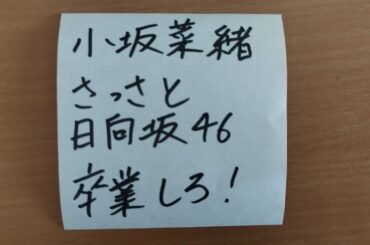 小坂菜緒
さっさと
日向坂46
卒業しろ！